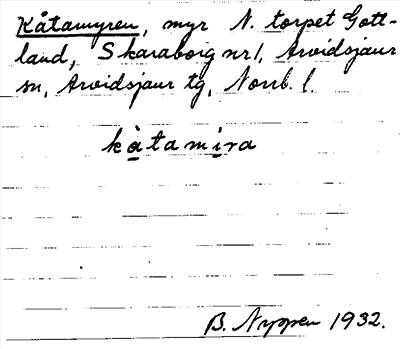 Kåtamyren, myr N. torpet Gott-
land, Skaraborg nr 1, Arvidsjaur
sn, Arvidsjaur tg, Norrb. l.
kåtamira
B. Nyppen 1932.